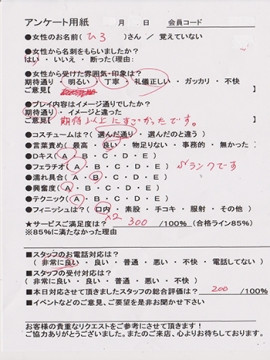 アンケート用紙　　月　　日　会員コード
●女性のお名前( ひろ )さん / 覚えていない
●女性から名刺をもらいましたか?
はい・いいえ・断った(理由:
●女性から受けた雰囲気・印象は?
期待通り・明るい・丁寧・礼儀正しい・ガッカリ・不快
ご意見【
●プレイ内容はイメージ通りでしたか?
期待通り・イメージと違った
ご意見【 期待以上にすごかったです。
●コスチュームは?( 選んだ通り ・ 選んだのと違う )
●言葉責め( 最高 ・ 良い ・ 物足りない ・ 事務的 ・ 無かった )
●Dキス( A ・ B ・ C ・ D ・ E )
●フェラチオ( A ・ B ・ C ・ D ・ E ) Sランクです
●濡れ具合( A ・ B ・ C ・ D ・ E )
●興奮度( A ・ B ・ C ・ D ・ E )
●テクニック( A ・ B ・ C ・ D ・ E )
●フィニッシュは?( 口内 ・ 素股 ・ 手コキ ・ 服射 ・ その他 )
×2
★サービスご満足度は? 300 /100% (合格ライン85%)
※85%に満たなかった理由
■スタッフのお電話対応は?
( 非常に良い ・ 良い ・ 普通 ・ 悪い ・ 不快 ・ 電話してない )
■スタッフの受付対応は?
( 非常に良い ・ 良い ・ 普通 ・ 悪い ・ 不快 )
■本日対応させて頂きましたスタッフの総合評価は? 200 /100%
■イベントなどのご意見、ご要望を是非お聞かせ下さい
お客様の貴重なリクエストをご参考にさせて頂きます!
ご協力ありがとうございました。またのご来店、心よりお待ちしております。